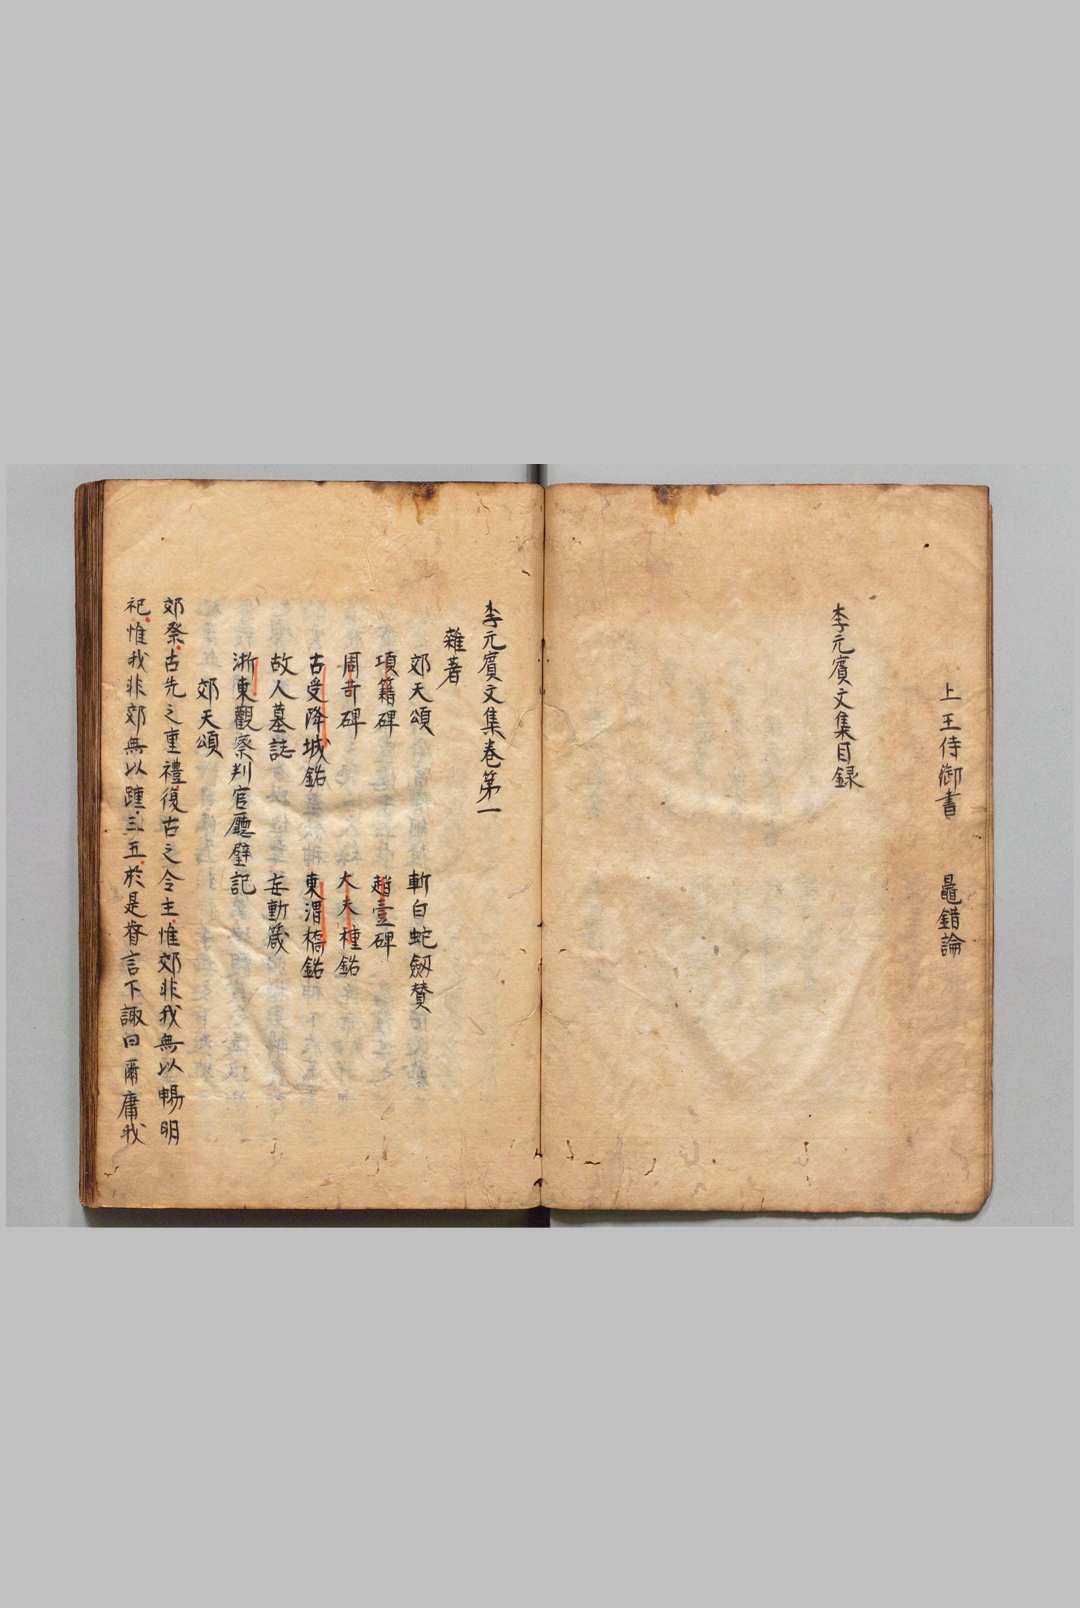 上王侍御書　鼂錯論
李元賓文集目録
李元賓文集卷第一
雜著
郊天頌　斬白蛇劔賛
項籍碑　趙壹碑
周苛碑　大夫種銘
古受降城銘　東渭橋銘
故人墓誌　妄動箴
浙東觀察判官廳壁記
郊天頌
郊祭古先之重禮復古之令主惟郊非我無以暢明
祀惟我非郊無以踵三五於是眷言下諏曰爾庸我